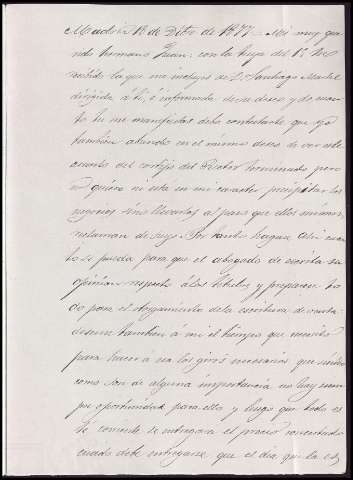 Madrid 18 de Dbre de 1877. Mi muy que
rido hermano Juan: con la tuya del 15 he
recibido la que me incluyes de D. Santiago
dirigida á ti, é informado de su deseo y de cuan
to tu me manifiestas debo contestarte que yo
tambien abundo en el mismo deseo de ver este
asunto del cortijo del terminado, pero
no quiero ni está en mi caracter precipitar los
negocios sino llevarlos al paso que ellos mismos
reclaman de suyo. Por tanto hagase asi cuan
to se pueda para que el abogado dé escrita su
opinion respecto á los titulos y preparen to
do para el otorgamiento de la escritura de venta:
deseme tambien á mi el tiempo que necesito
para hacer á esa los giros necesarios que siendo
como son de alguna importancia no hay siem
pre oportunidad para ello, y luego que todo es
té corriente se entregará el precio concertado
cuando debe entregarse que el dia que la es